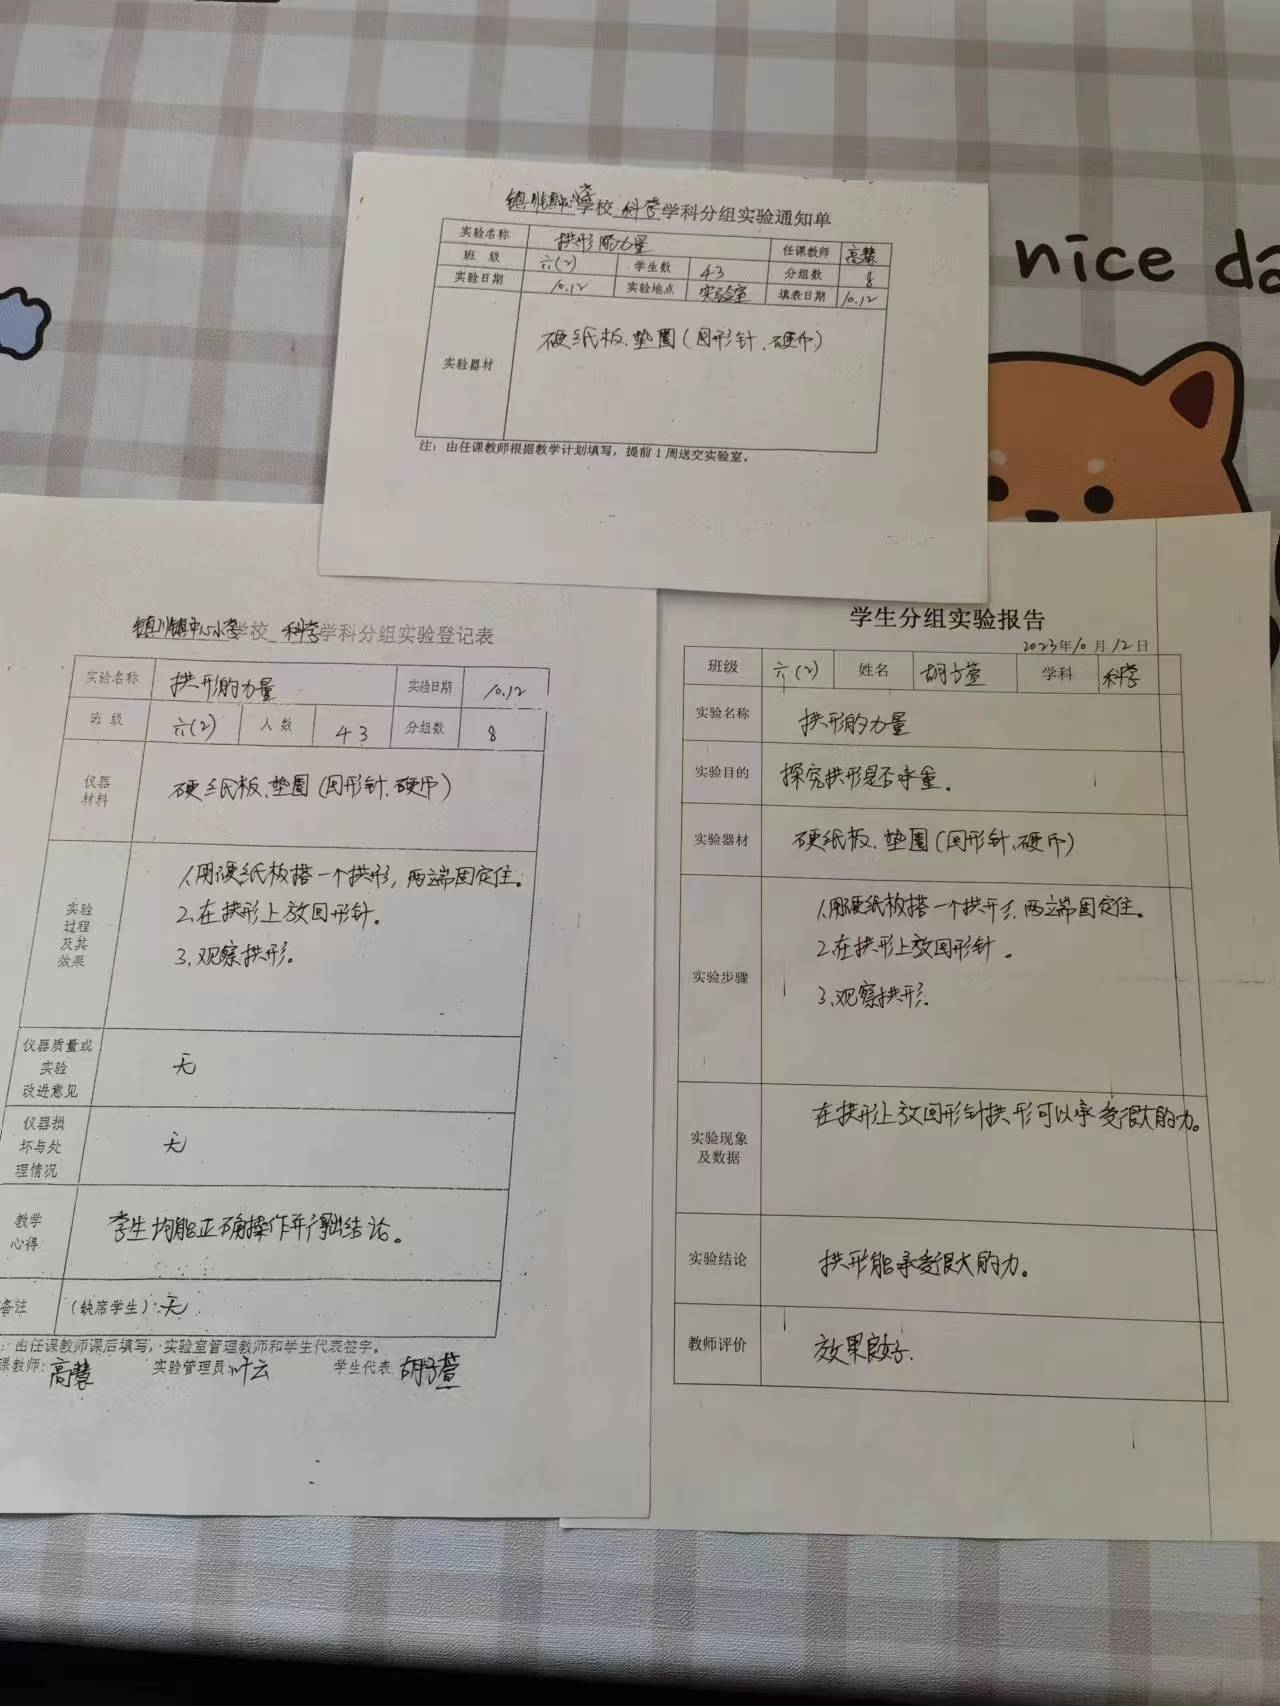 镇川镇中心小学学校 科学学科分组实验通知单
实验名称 拱形的力量 任课教师 高慧
班 级 六(2) 学生数 43 分组数 8
实验日期 10.12 实验地点 实验室 填表日期 10.12
实验器材 硬纸板、垫圈(回形针、硬币)
注:由任课教师根据教学计划填写,提前1周送交实验室。
nice da
镇川镇中心小学学校 科学学科分组实验登记表
实验名称 拱形的力量 实验日期 10.12
班 级 六(2) 人 数 43 分组数 8
仪器材料 硬纸板、垫圈(回形针、硬币)
实验过程及其效果
1、用硬纸板搭一个拱形,两端固定住。
2、在拱形上放回形针。
3、观察拱形。
仪器质量或实验改进意见 无
仪器损坏与处理情况 无
教学心得 学生均能正确操作并得出结论。
备注 (缺席学生):无
:由任课教师课后填写,实验室管理教师和学生代表签字。
课教师:高慧 实验管理员:叶云 学生代表 胡子萱
学生分组实验报告
2023年10月12日
班级 六(2) 姓名 胡子萱 学科 科学
实验名称 拱形的力量
实验目的 探究拱形是否承重。
实验器材 硬纸板、垫圈(回形针、硬币)
实验步骤
1、用硬纸板搭一个拱形,两端固定住。
2、在拱形上放回形针。
3、观察拱形。
实验现象及数据 在拱形上放回形针拱形可以承受很大的力。
实验结论 拱形能承受很大的力。
教师评价 效果良好.